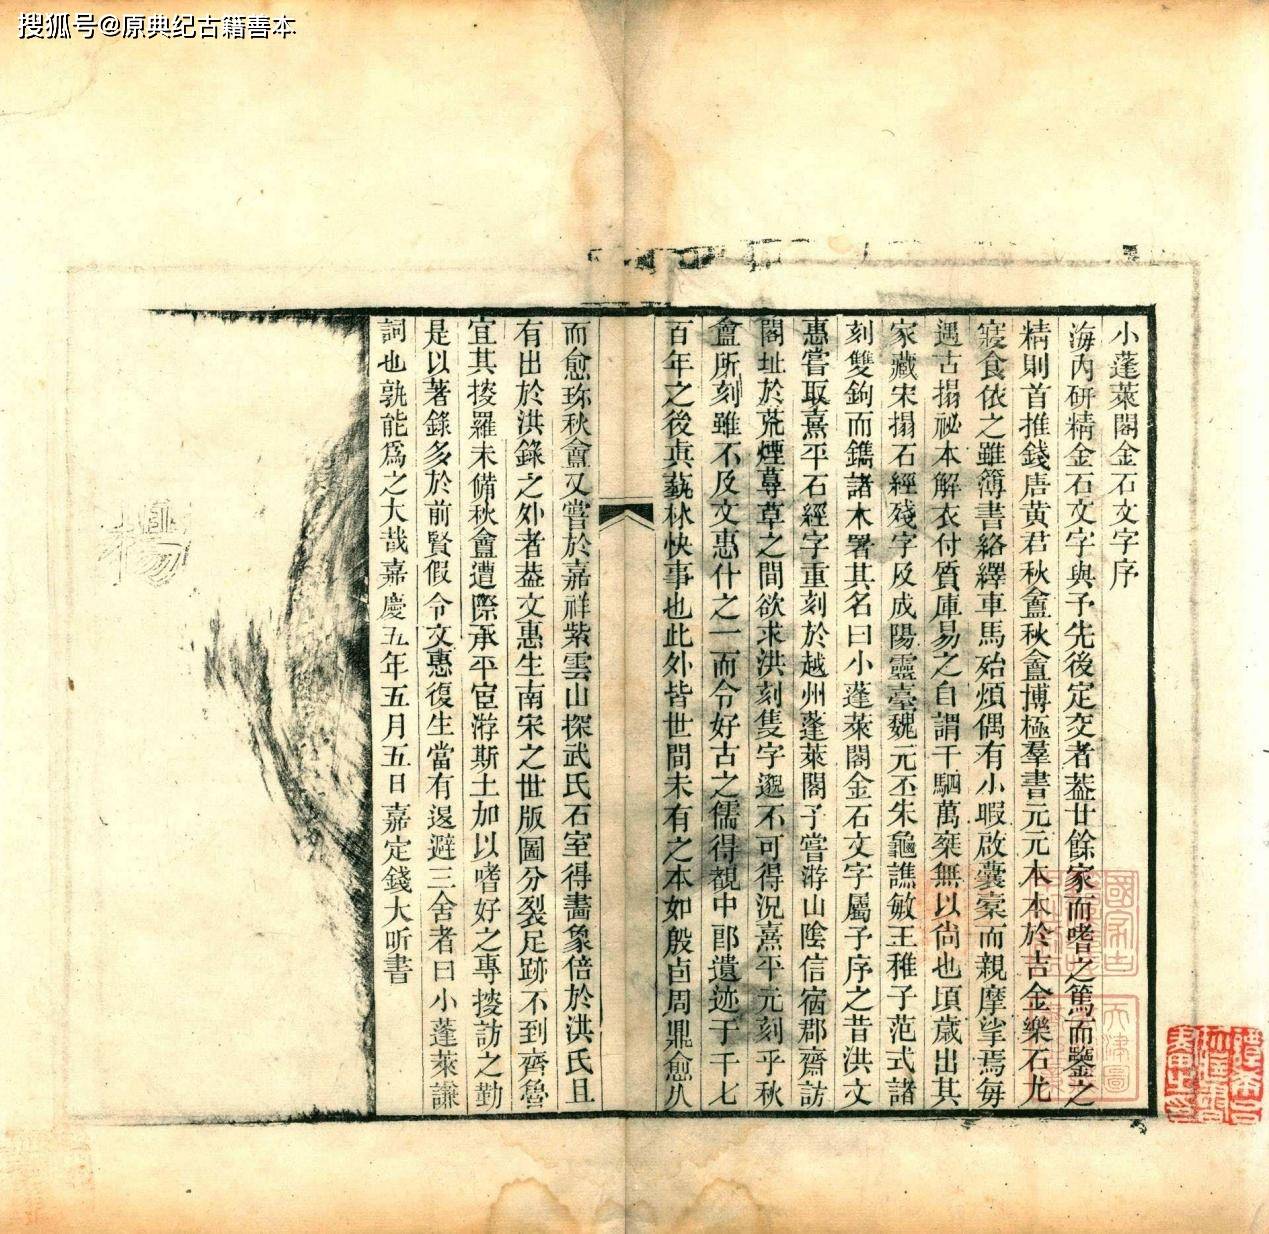 搜狐号@原典纪古籍善本
小蓬萊閣金石文字序
海內研精金石文字與予先後定交者葢廿餘家而嗜之篤而鑒之
精則首推錢唐黃君秋盦秋盦博極羣書元元本本於吉金樂石尤
寢食依之雖簿書絡繹車馬殆煩偶有小暇啟囊橐而親摩挲焉每
遇古搨祕本解衣付質庫易之自謂千駟萬乘無以尙也頃歲出其
家藏宋搨石經殘字及成陽靈臺魏元丕朱龜譙敏王稚子范式諸
刻雙鉤而鐫諸木署其名曰小蓬萊閣金石文字屬予序之昔洪文
惠嘗取熹平石經字重刻於越州蓬萊閣予嘗游山陰信宿郡齋訪
閣址於荒煙蔓草之間欲求洪刻隻字邈不可得況熹平元刻乎秋
盦所刻雖不及文惠什之一而令好古之儒得覩中郎遺迹于千七
百年之後眞藝林快事也此外皆世間未有之本如殷卣周鼎愈久
而愈珍秋盦又嘗於嘉祥紫雲山探武氏石室得畵象倍於洪氏且
有出於洪錄之外者葢文惠生南宋之世版圖分裂足跡不到齊魯
宜其搜羅未備秋盦遭際承平宦游斯土加以嗜好之專搜訪之勤
是以著錄多於前賢假令文惠復生當有退避三舍者曰小蓬萊謙
詞也孰能爲之大哉嘉慶五年五月五日嘉定錢大昕書